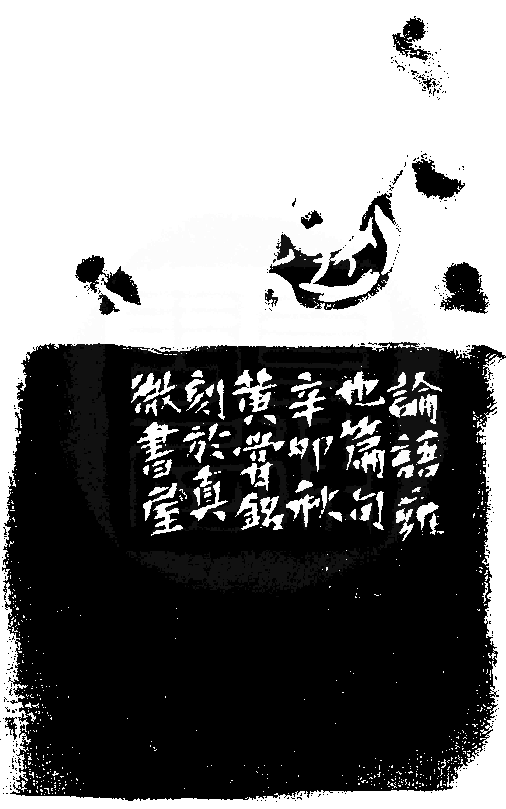 論語雍
也篇句
辛卯秋
黄嘗銘
刻於真
微書屋